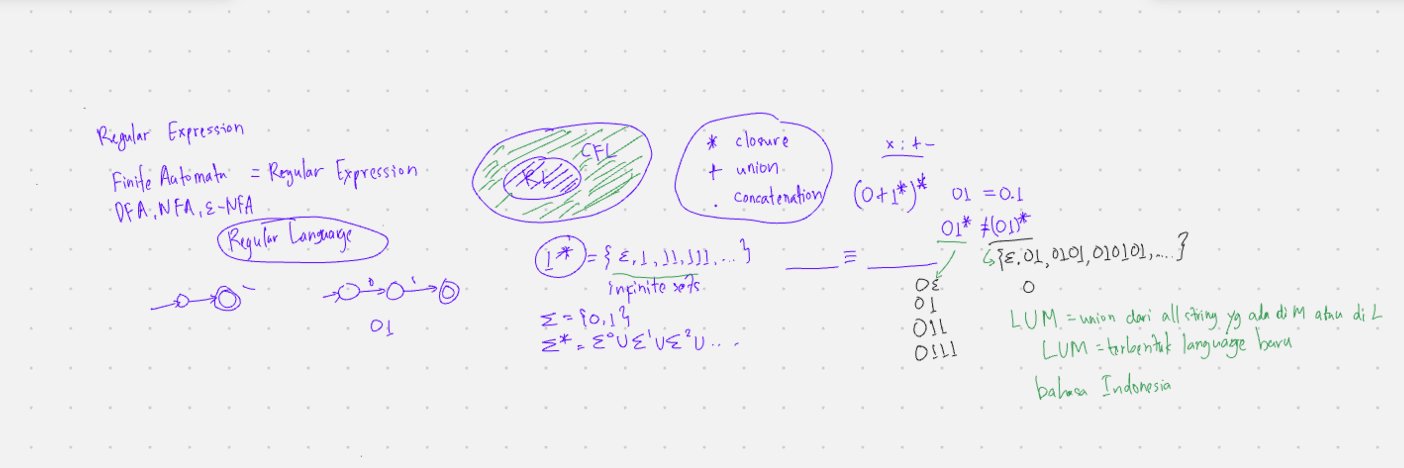 Regular Expression
Finite Automata = Regular Expression
DFA, NFA, ε-NFA
Regular Language
0 1
01
CFL
RL
* closure
+ union
. concatenation
x : + -
(0+1*)*
01 = 0.1
01* ≠ (01)*
{ε, 01, 0101, 010101, ....}
1* = {ε, 1, 11, 111, ...}
infinite sets
≡
Σ = {0,1}
Σ* = Σ⁰ ∪ Σ¹ ∪ Σ² ∪ ....
0ε
01
011
0111
0
LUM = union dari all string yg ada di M atau di L
LUM = terbentuk language baru
bahasa Indonesia